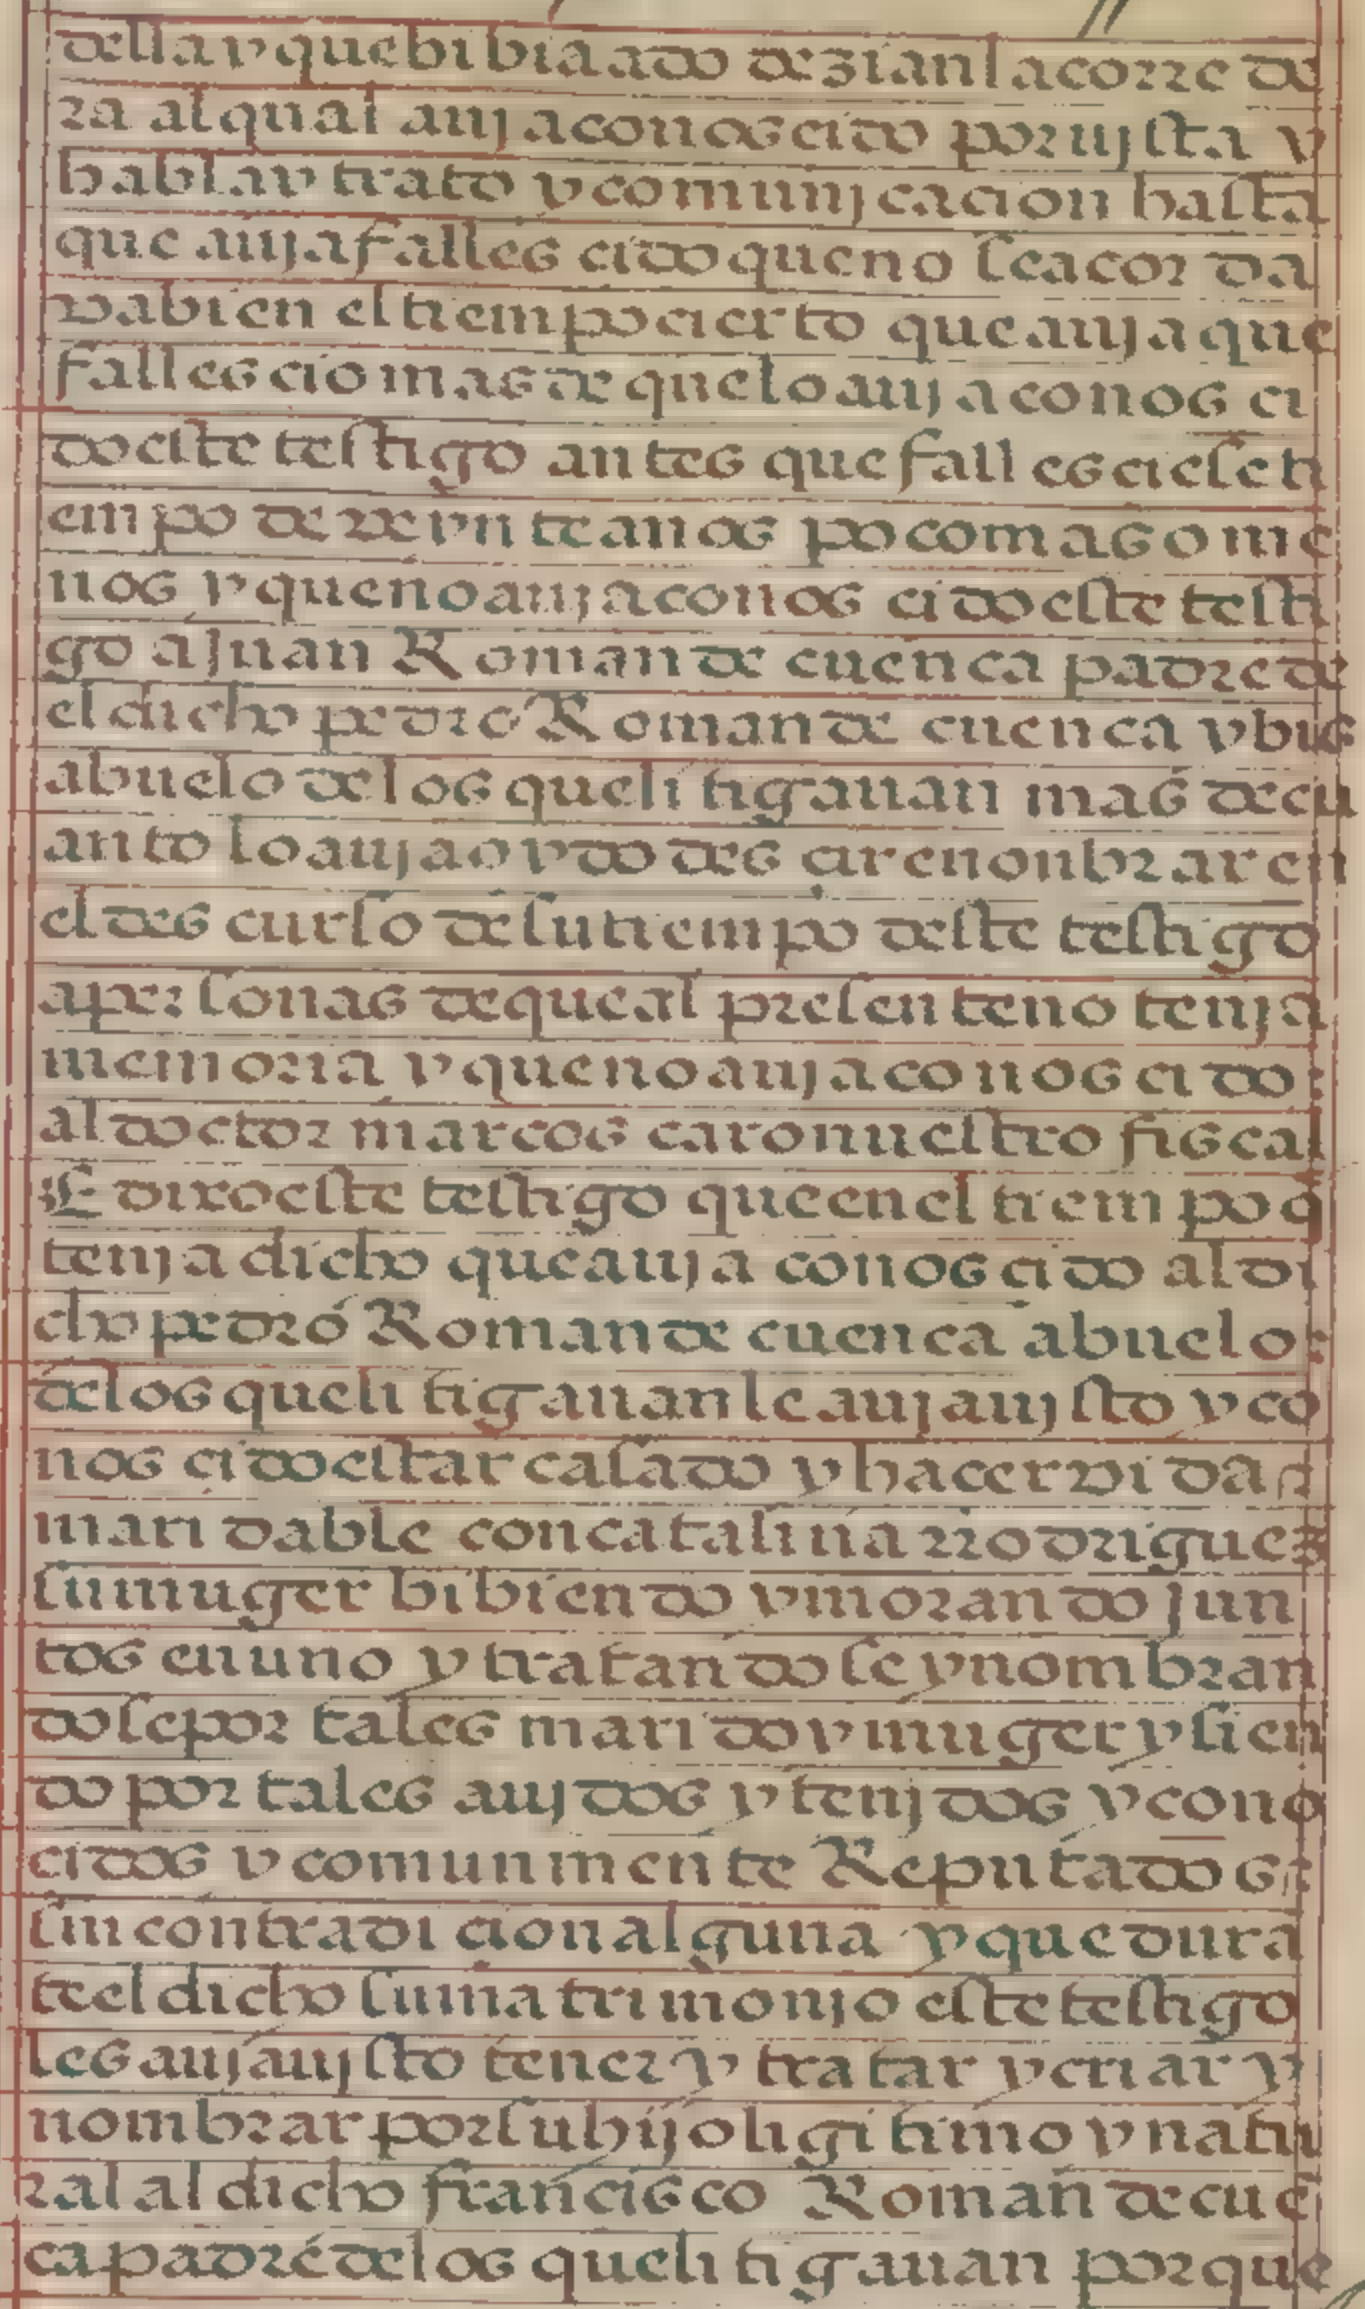 della y que bibia ado dezian la corre de
ra al qual auja conoscido por ujsta y
habla y trato y comunjcacion hasta
que auja fallescido que no se acorda
va bien el tiempo cierto que auja que
fallescio mas de que lo auja conosci
do este testigo antes que fallesciese ti
empo de veynte anos poco mas o me
nos y que no auja conoscido este testi
go a Juan Roman de cuenca padre de
el dicho pedro Roman de cuenca y bis
abuelo de los que litigauan mas de cu
anto lo auja oydo descir e nonbrar en
el descurso de su tiempo deste testigo
a personas de que al presente no tenja
memoria y que no auja conoscido
al doctor marcos caro nuestro fiscal
E dixo este testigo que en el tiempo q̃
tenja dicho que auja conoscido al di
cho pedro Roman de cuenca abuelo
de los que litigauan le auja ujsto y co
noscido estar casado y hacer vida
maridable con catalina rrodriguez
su muger bibiendo y morando Jun
tos en uno y tratandose y nombran
dose por tales marido y muger y sien
do por tales aujdos y tenjdos y cono
cidos y comunmente Reputados
sin contradicion alguna y que durã
te el dicho su matrimonjo este testigo
les auja ujsto tener y tratar y criar y
nombrar por su hijo ligitimo y natu
ral al dicho francisco Roman de cuẽ
ca padre de los que litigauan porque